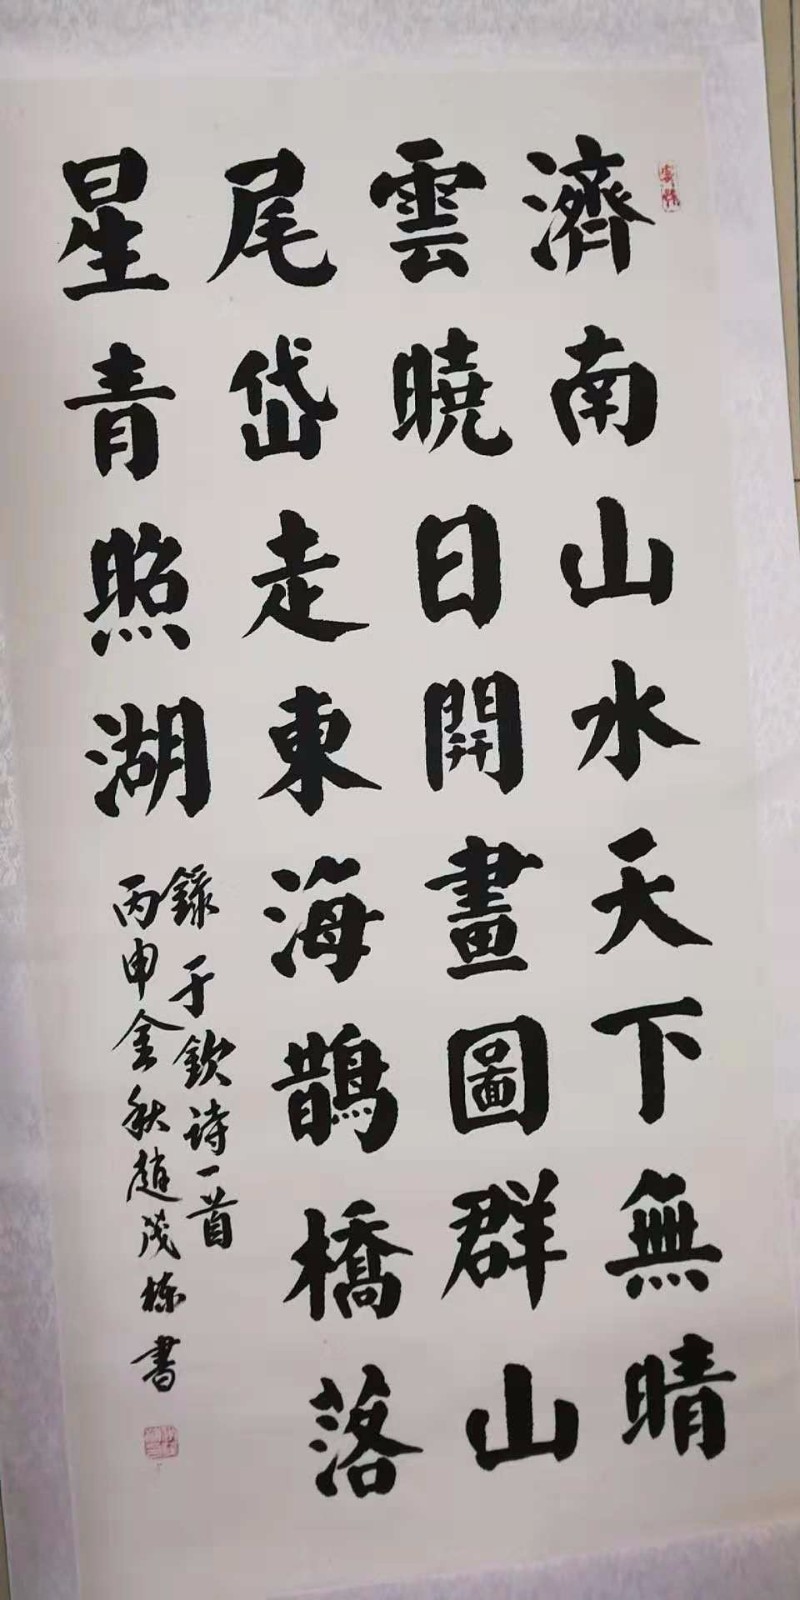 濟南山水天下無晴
雲曉日開畫圖群山
尾岱走東海鵲橋落
星青照湖
錄于欽诗一首
丙申金秋趙茂栋書